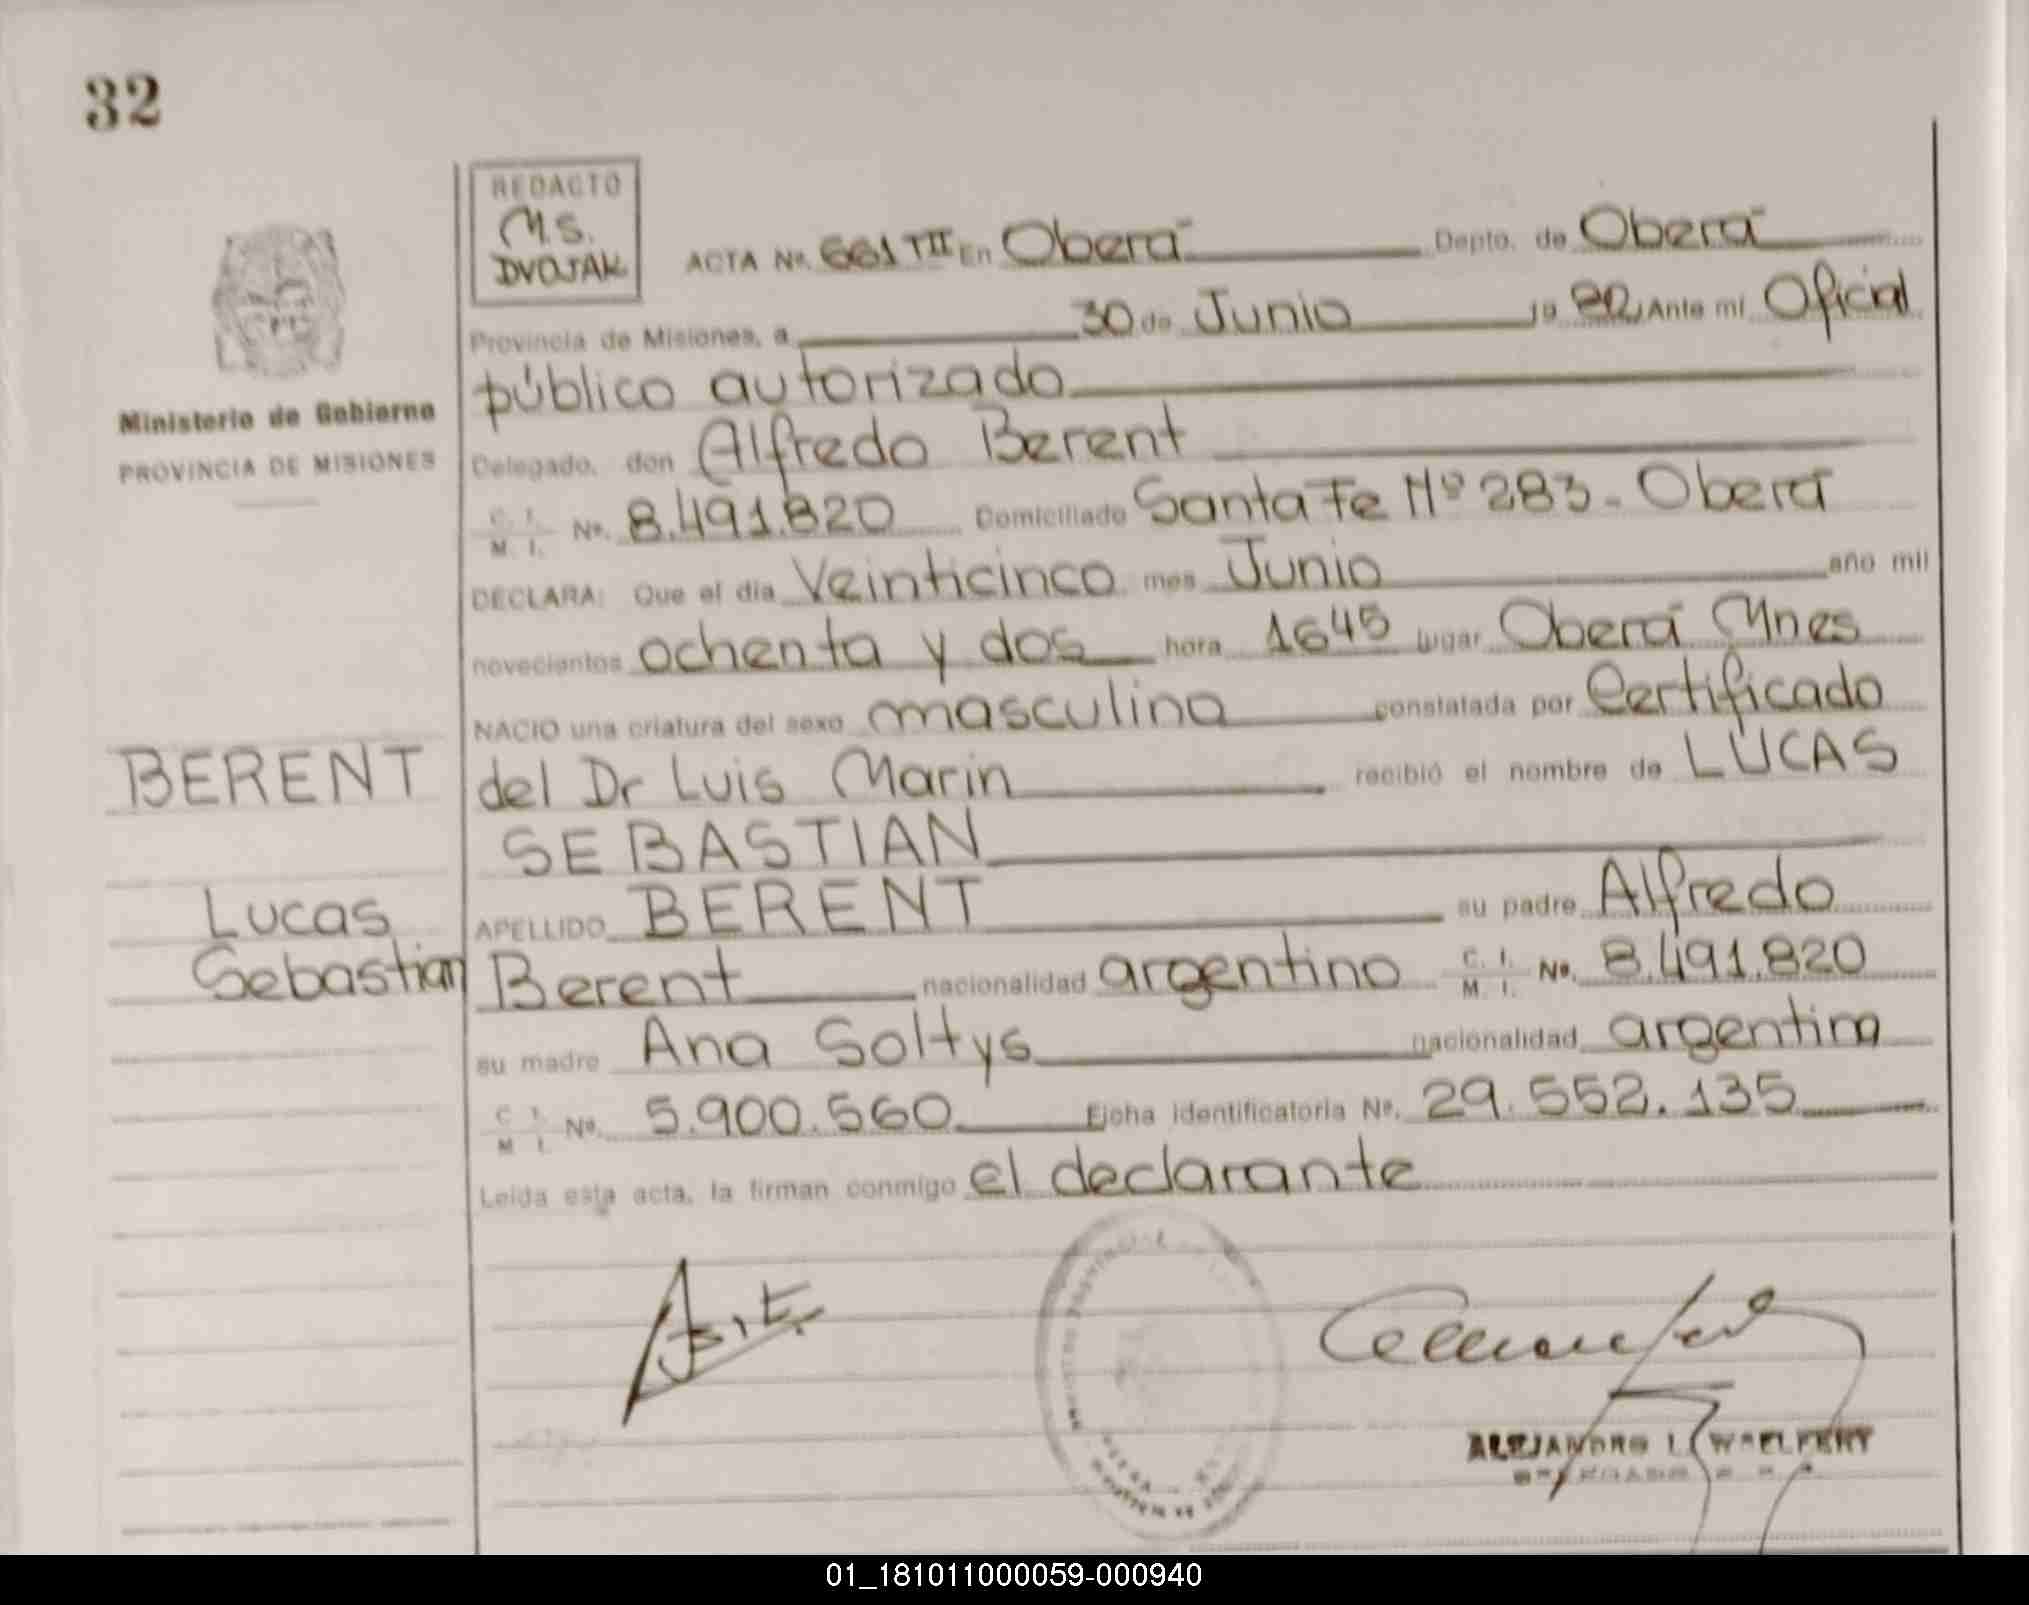 32
REDACTO
M.S.
DVOJAK
ACTA Nº. 661 TII En Oberá Depto. de Oberá
Provincia de Misiones, a 30 de Junio 19 82 Ante mí Oficial
público autorizado
Delegado, don Alfredo Berent
C. I. M. I. Nº. 8.491.820 Domiciliado Santa Fe Nº 283 - Oberá
DECLARA: Que el día Veinticinco mes Junio año mil
novecientos ochenta y dos hora 1645 lugar Oberá Mnes
NACIO una criatura del sexo masculino constatada por Certificado
del Dr Luis Marin recibió el nombre de LUCAS
SEBASTIAN
APELLIDO BERENT su padre Alfredo
Berent nacionalidad argentino C. I. M. I. Nº. 8.491.820
su madre Ana Soltys nacionalidad argentina
C. I. M. I. Nº. 5.900.560 Ficha identificatoria Nº. 29.552.135
Leída esta acta, la firman conmigo el declarante
Ministerio de Gobierno
PROVINCIA DE MISIONES
BERENT
Lucas
Sebastian
ALEJANDRO
01_181011000059-000940